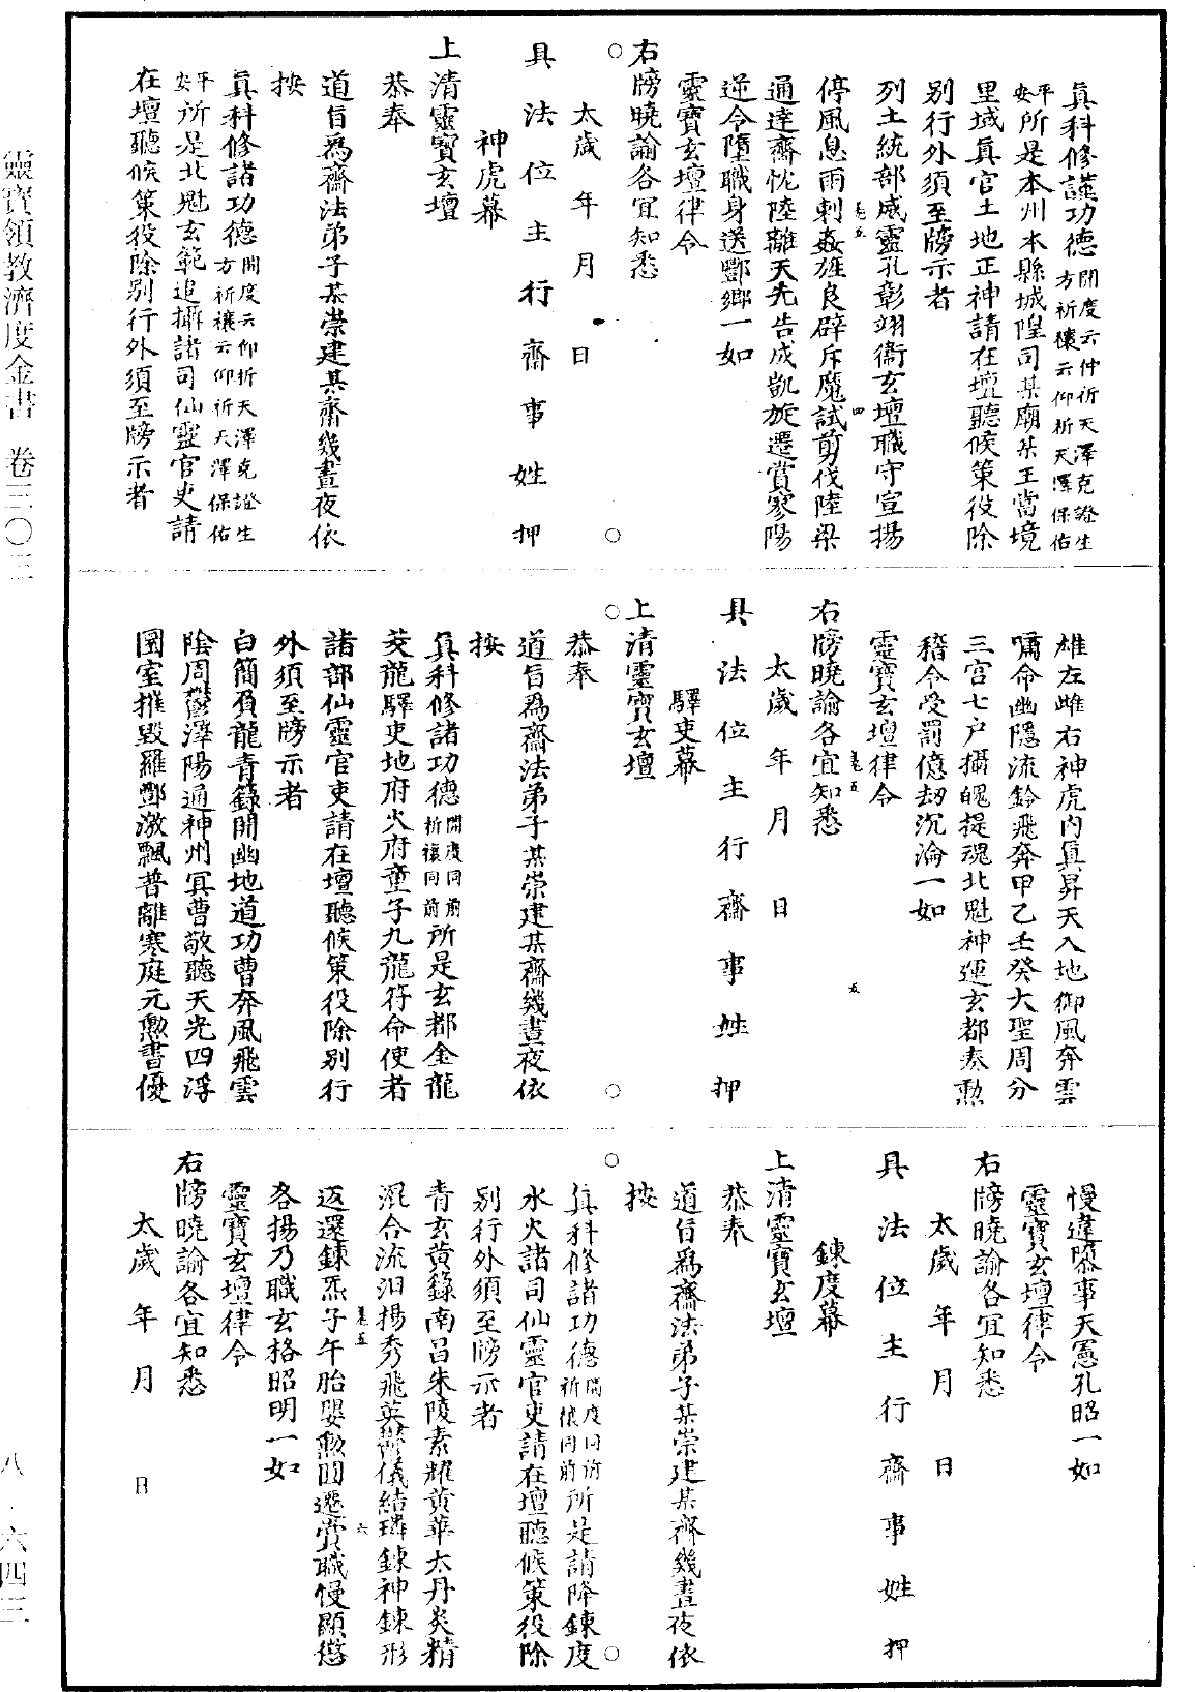 真科修諸功德開度云仰祈天澤克證生方祈禳云仰祈天澤保佑
平安所是本州本縣城隍司某廟某王當境
里域真官土地正神請在壇聽候策役除
別行外須至牓示者
列土統部威靈孔彰翊衞玄壇職守宣揚
停風息雨剌姦旌良辟斥魔試剪伐陸梁
通達齋忱陸離天先告成凱旋遷賞寥陽
逆令墮職身送酆鄉一如
靈寶玄壇律令
右牓曉諭各宜知悉
太歲年月日
具法位主行齋事姓押
神虎幕
上清靈寶玄壇
恭奉
道旨爲齋法弟子某崇建某齋幾晝夜依
按
真科修諸功德開度云仰祈天澤克證生方祈禳云仰祈天澤保佑
平安所是北魁玄範追攝諸司仙靈官吏請
在壇聽候策役除別行外須至牓示者
雄左雌右神虎內真昇天入地御風奔雲
嘯命幽隱流鈴飛奔甲乙壬癸大聖周分
三宮七戶攝魄提魂北魁神運玄都奏勲
稽令受罰億劫沉淪一如
靈寶玄壇律令
右牓曉諭各宜知悉
太歲年月日
具法位主行齋事姓押
驛吏幕
上清靈寶玄壇
恭奉
道旨爲齋法弟子某崇建某齋幾晝夜依
按
真科修諸功德開度同前祈禳同前所是玄都金龍
茭龍驛吏地府火府童子九龍符命使者
諸部仙靈官吏請在壇聽候策役除別行
外須至牓示者
白簡負龍青籙開幽地道功曹奔風飛雲
陰周鬱澤陽通神州冥曹敬聽天光四浮
圜室摧毀羅酆激飄普離寒庭元勲書優
慢違隳事天憲孔昭一如
靈寶玄壇律令
右牓曉諭各宜知悉
太歲年月日
具法位主行齋事姓押
鍊度幕
上清靈寶玄壇
恭奉
道旨爲齋法弟子某崇建某齋幾晝夜依
按
真科修諸功德開度同前祈禳同前所是請降鍊度
水火諸司仙靈官吏請在壇聽候策役除
別行外須至牓示者
青玄黃籙南昌朱陵素耀黃華太丹炎精
混合流汨揚秀飛英鬱儀結璘鍊神鍊形
返還鍊炁子午胎嬰勲圓遷賞職慢顯愆
各揚乃職玄格昭明一如
靈寶玄壇律令
右牓曉諭各宜知悉
太歲年月日
靈寶領教濟度金書 卷三〇三
八·六四三